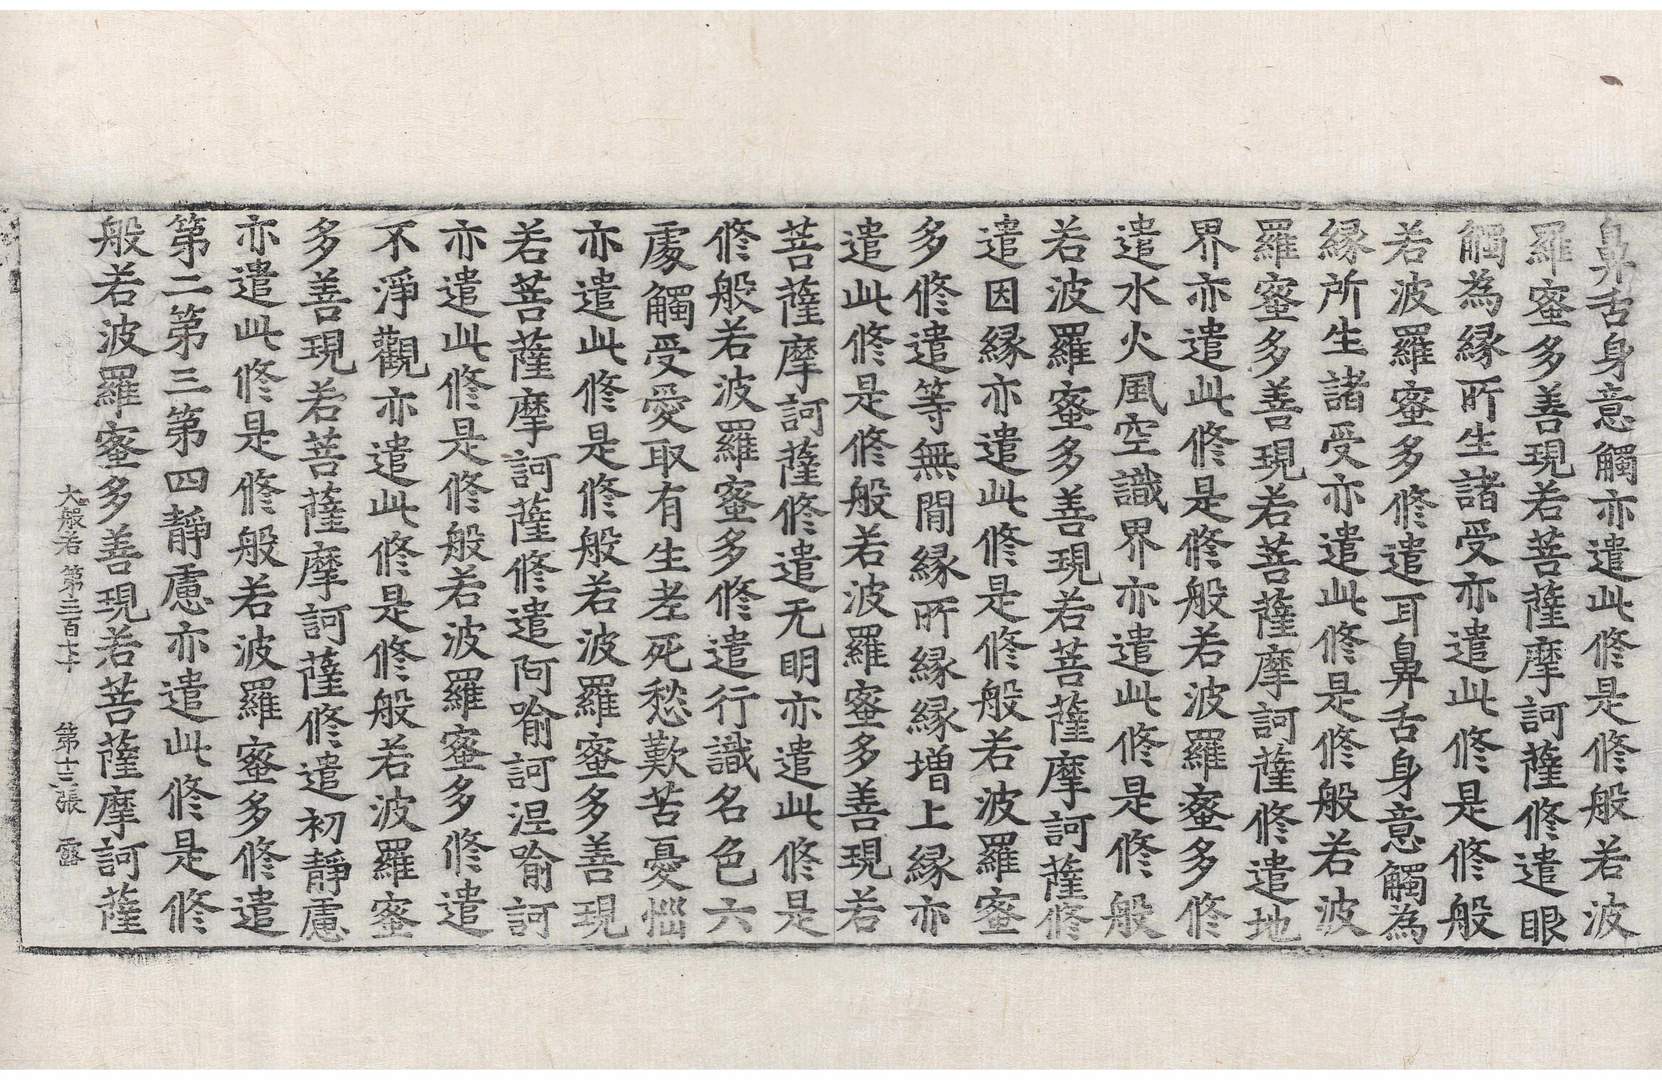 鼻舌身意觸亦遣此修是修般若波
羅蜜多善現若菩薩摩訶薩修遣眼
觸為緣所生諸受亦遣此修是修般
若波羅蜜多修遣耳鼻舌身意觸為
緣所生諸受亦遣此修是修般若波
羅蜜多善現若菩薩摩訶薩修遣地
界亦遣此修是修般若波羅蜜多修
遣水火風空識界亦遣此修是修般
若波羅蜜多善現若菩薩摩訶薩修
遣因緣亦遣此修是修般若波羅蜜
多修遣等無間緣所緣緣增上緣亦
遣此修是修般若波羅蜜多善現若
菩薩摩訶薩修遣无明亦遣此修是
修般若波羅蜜多修遣行識名色六
處觸受愛取有生老死愁歎苦憂惱
亦遣此修是修般若波羅蜜多善現
若菩薩摩訶薩修遣阿喻訶涅喻訶
亦遣此修是修般若波羅蜜多修遣
不淨觀亦遣此修是修般若波羅蜜
多善現若菩薩摩訶薩修遣初靜慮
亦遣此修是修般若波羅蜜多修遣
第二第三第四靜慮亦遣此修是修
般若波羅蜜多善現若菩薩摩訶薩
大般若 第三百七十 第十三張 露